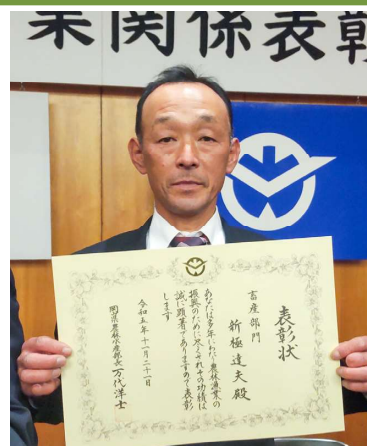 業関係表彰
表彰状
畜産部門
新極達夫殿
あなたは多年にわたり農林漁業の
振興のために尽くされその功績は
誠に顕著でありますので表彰
します
令和五年十一月二十一日
岡山県農林水産部長 万代洋士